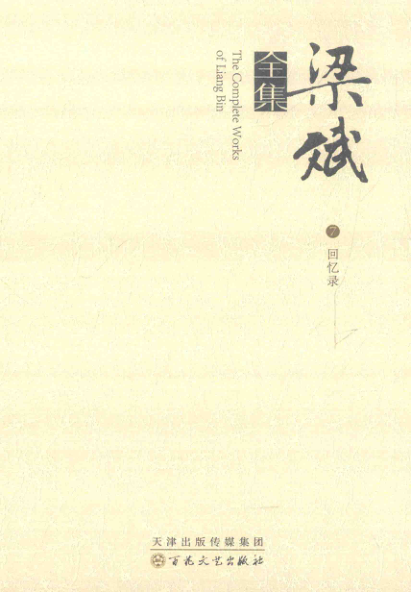 梁斌
全集
The Complete Works
of Liang Bin
7
回忆录
天津出版传媒集团
百花文艺出版社